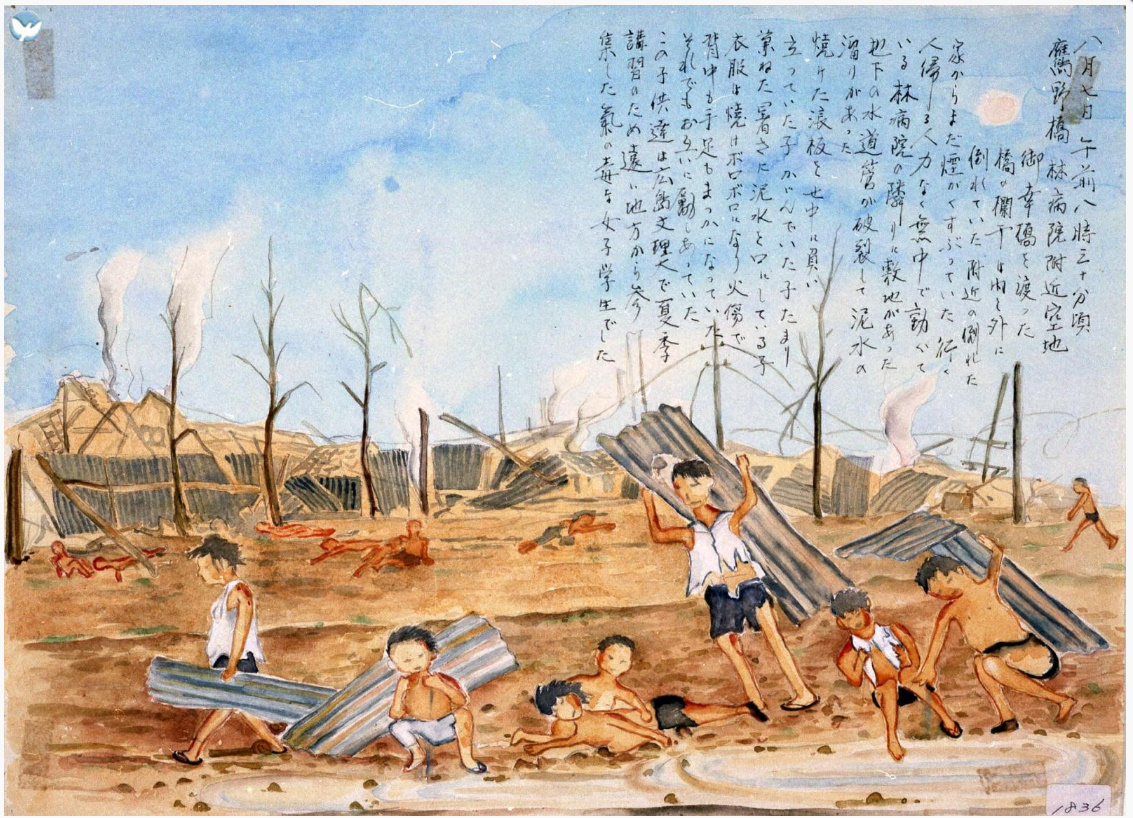 八月七日 午前八時三十分頃
鷹野橋 林病院附近空地
御幸橋を渡った
橋の欄干は内と外に
倒れていた 附近の倒れた
家からまだ煙がくすぶっていた 行く
人帰る人力なく無中で動いて
いる 林病院の隣りに敷地があった
地下の水道管が破裂して泥水の
溜りがあった
焼けた浪板を せ中に負い
立っていた子 かがんでいた子たまり
兼ねた暑さに泥水を口にしている子
衣服は焼けボロボロになり火傷で
背中も手足もまっかになっていた
それでもお互いに励しあっていた
この子供達は広島文理大で夏季
講習のため遠い地方から参
集した氣の毒な女子学生でした
1836